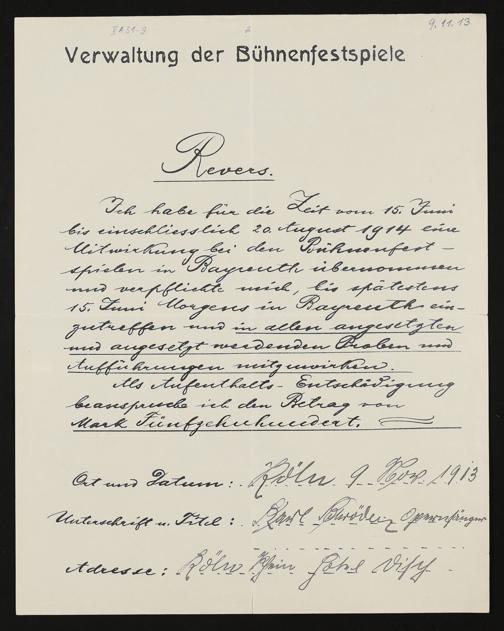 II A 31-3
2
9.11.13
Verwaltung der Bühnenfestspiele
Revers.
Ich habe für die Zeit vom 15. Juni
bis einschliesslich 20. August 1914 eine
Mitwirkung bei den Bühnenfest-
spielen in Bayreuth übernommen
und verpflichte mich, bis spätestens
15. Juni Morgens in Bayreuth ein-
zutreffen und in allen angesetzten
und angesetzt werdenden Proben und
Aufführungen mitzuwirken.
Als Aufenthalts-Entschädigung
beanspruche ich den Betrag von
Mark Fünfzehnhundert.
Ort und Datum: Köln 9 Nov 1913
Unterschrift u. Titel: Karl Opernsänger
Adresse: Köln Rhein Hotel Disch